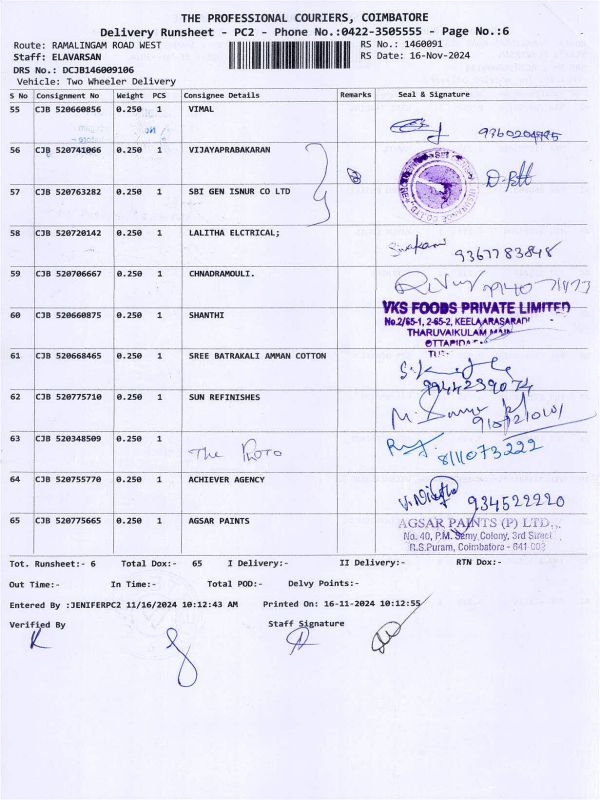 THE PROFESSIONAL COURIERS, COIMBATORE
Delivery Runsheet - PC2 - Phone No.:0422-3505555 - Page No.:6
Route: RAMALINGAM ROAD WEST RS No.: 1460091
Staff: ELAVARSAN RS Date: 16-Nov-2024
DRS No.: DCJB146009106
Vehicle: Two Wheeler Delivery
S No Consignment No Weight PCS Consignee Details Remarks Seal & Signature
55 CJB 520660856 0.250 1 VIMAL
56 CJB 520741066 0.250 1 VIJAYAPRABAKARAN
57 CJB 520763282 0.250 1 SBI GEN ISNUR CO LTD
58 CJB 520720142 0.250 1 LALITHA ELCTRICAL;
9367783848
59 CJB 520706667 0.250 1 CHNADRAMOULI.
60 CJB 520660875 0.250 1 SHANTHI
VKS FOODS PRIVATE LIMITED
No.2/65-1, 2-65-2, KEELAARASARADI
THARUVAIKULAM MAIN
61 CJB 520668465 0.250 1 SREE BATRAKALI AMMAN COTTON
9944239074
62 CJB 520775710 0.250 1 SUN REFINISHES
63 CJB 520348509 0.250 1 The PROTO
8111073222
64 CJB 520755770 0.250 1 ACHIEVER AGENCY
934522220
65 CJB 520775665 0.250 1 AGSAR PAINTS
AGSAR PAINTS (P) LTD.,
No. 40, P.M. Samy Colony, 3rd Street
R.S.Puram, Coimbatore - 641 002
Tot. Runsheet:- 6 Total Dox:- 65 I Delivery:- II Delivery:- RTN Dox:-
Out Time:- In Time:- Total POD:- Delvy Points:-
Entered By :JENIFERPC2 11/16/2024 10:12:43 AM Printed On: 16-11-2024 10:12:55
Verified By Staff Signature